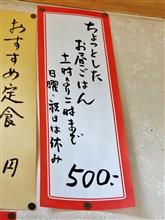 ちょっとした
お昼ごはん
十一時より二時まで
日曜・祝日は休み
500.-
おすすめ定食 円